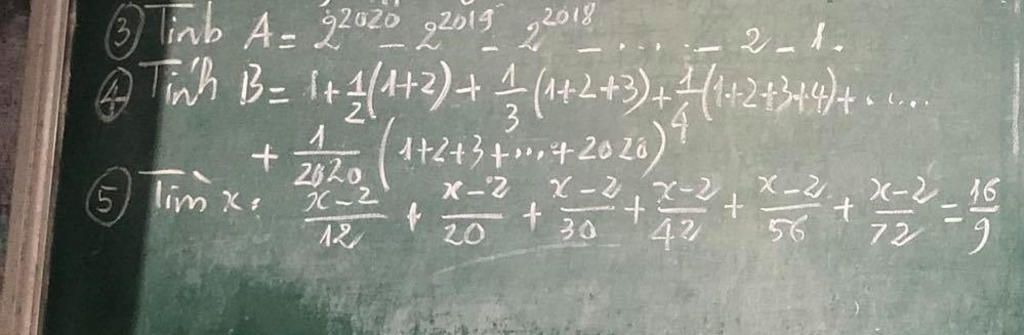 ③ Tính A = 2^2020 - 2^2019 - 2^2018 - .... - 2 - 1.
④ Tính B = 1 + 1/2 (1+2) + 1/3 (1+2+3) + 1/4 (1+2+3+4) + .....
+ 1/2020 (1+2+3+...+2020)
⑤ Tìm x: (x-2)/12 + (x-2)/20 + (x-2)/30 + (x-2)/42 + (x-2)/56 + (x-2)/72 = 16/9